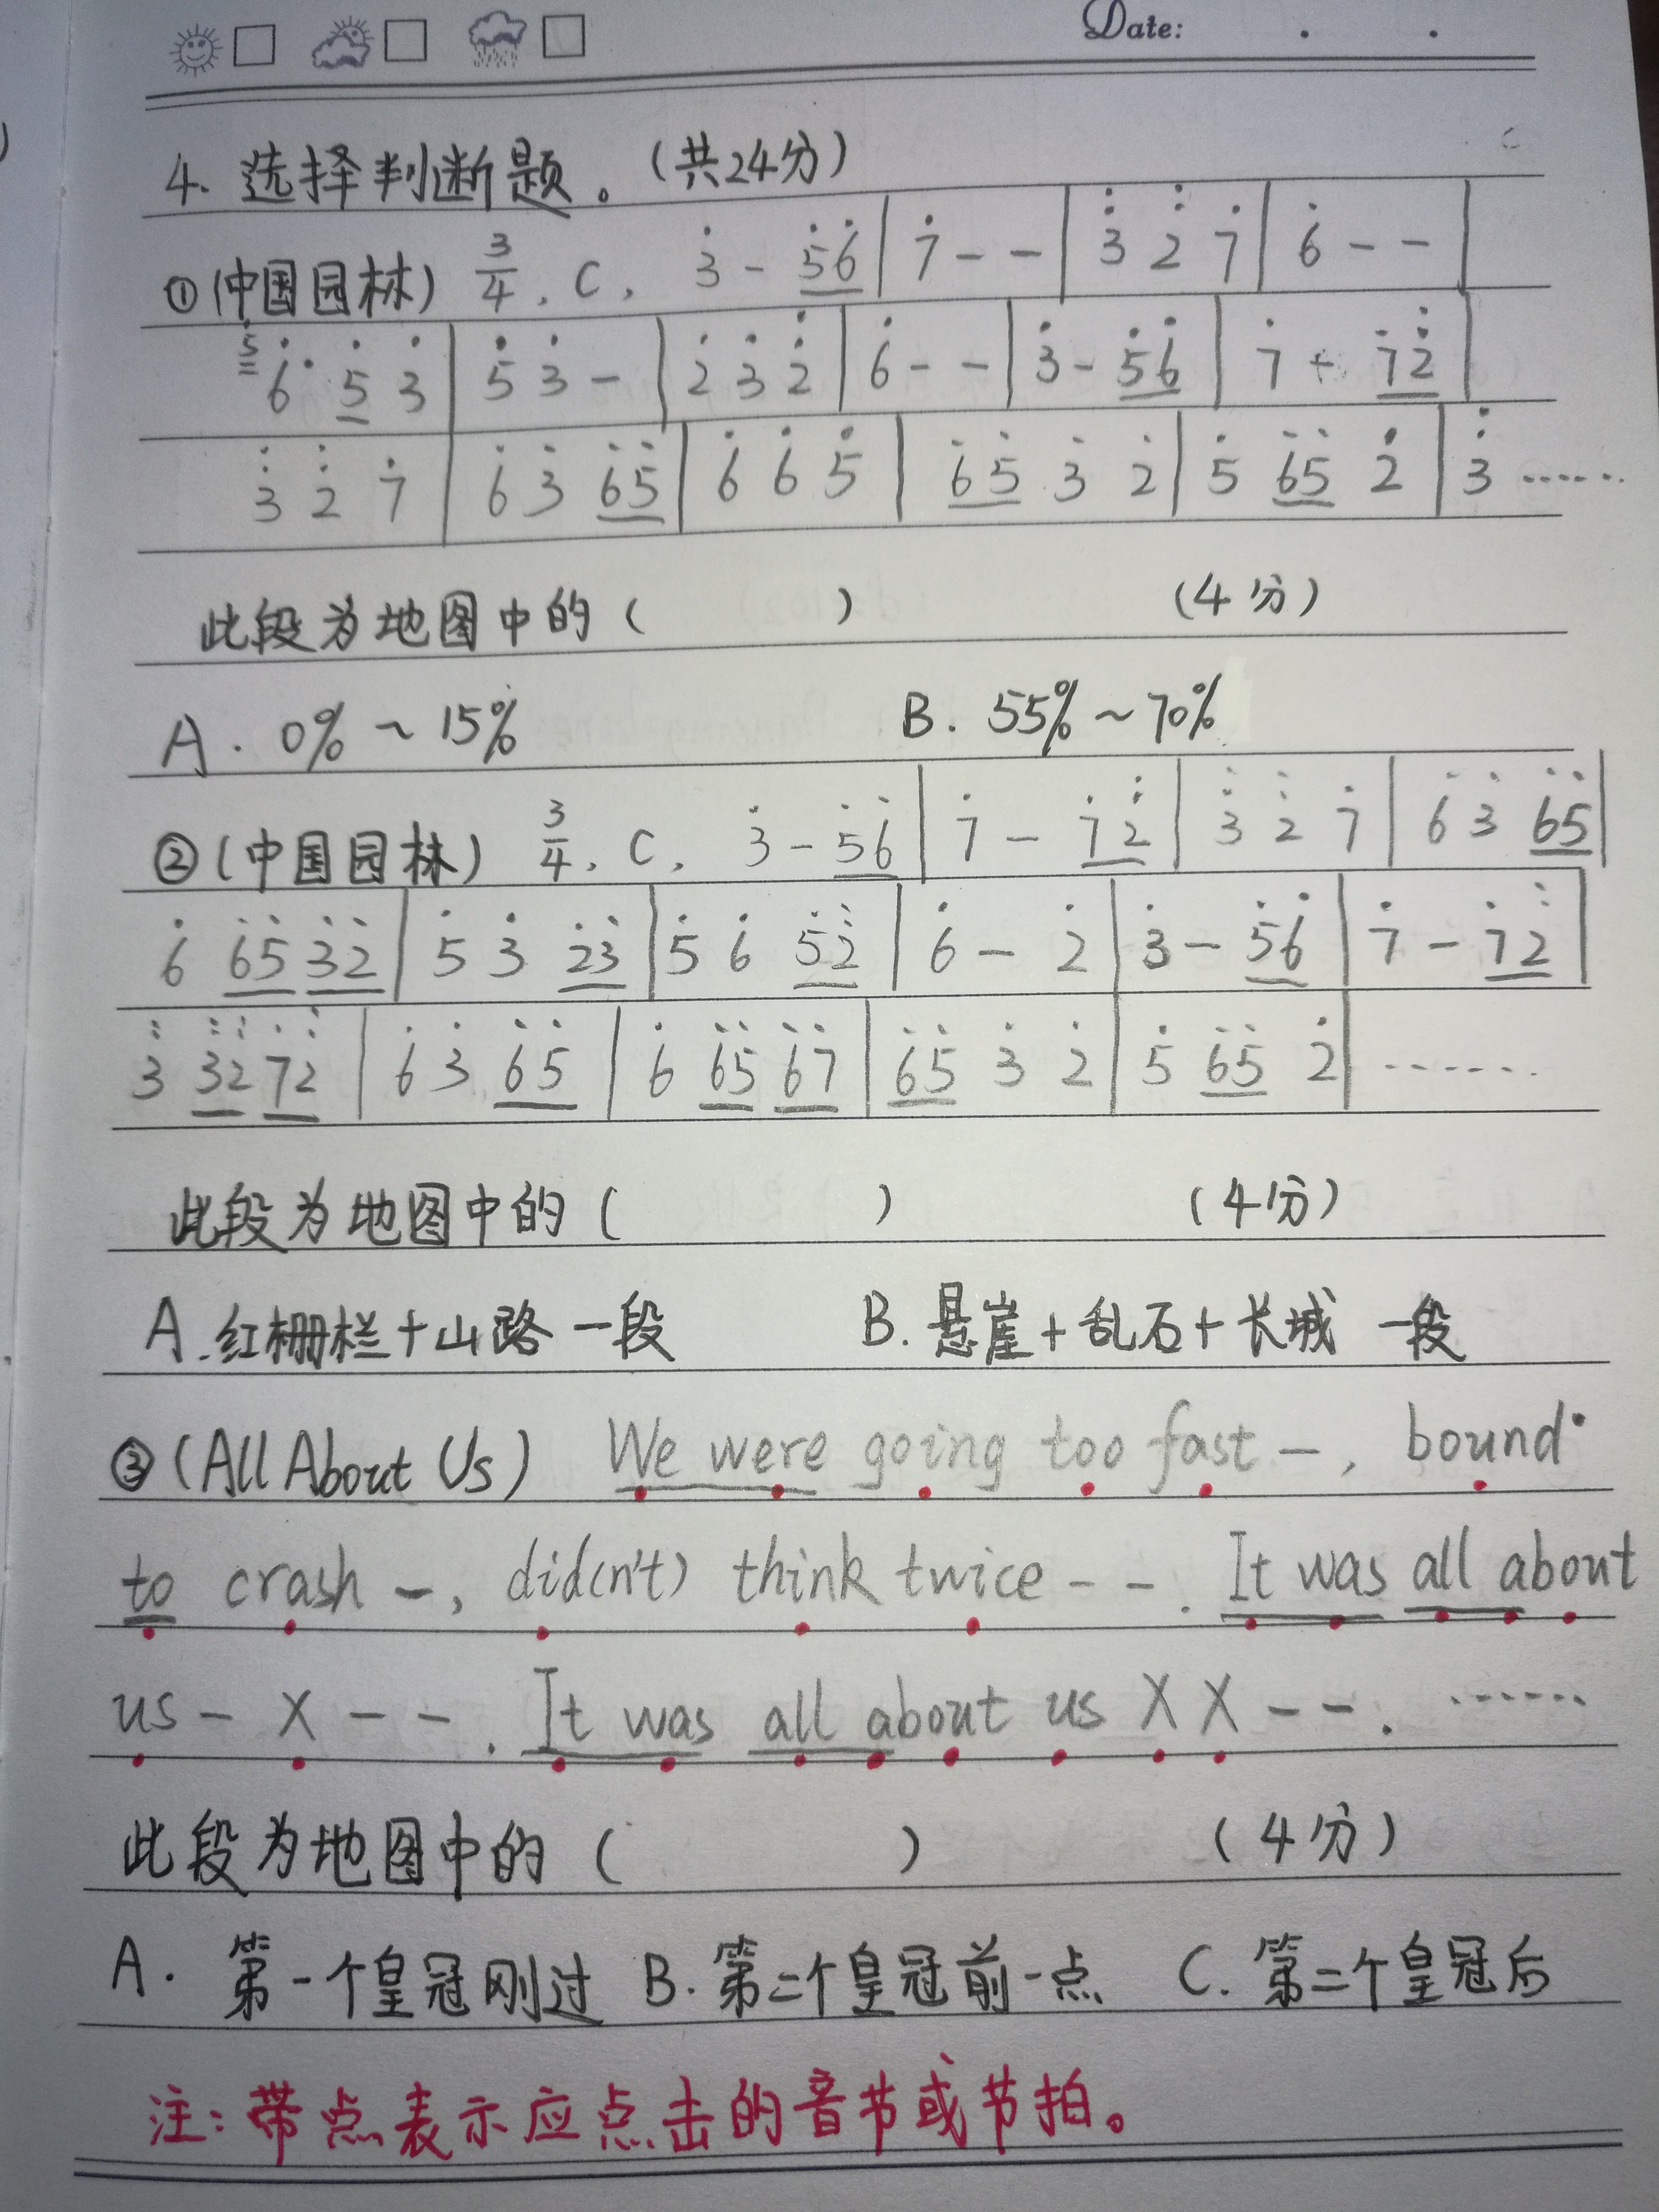 Date:
4. 选择判断题。(共24分)
①(中国园林) 3/4, C, 3̇ - 5̇6̇ | 7̇ - - | 3̈ 2̈ 7̇ | 6̇ - - |
5̇ 6̇· 5̇ 3̇ | 5̇ 3̇ - | 2̇ 3̇ 2̈ | 6̇ - - | 3̇ - 5̇6̇ | 7̇ - 7̇2̈ |
3̈ 2̈ 7̇ | 6̇ 3̇ 6̇5̇ | 6̇ 6̇ 5̇ | 6̇5̇ 3̇ 2̇ | 5̇ 6̇5̇ 2̇ | 3̈ ……
此段为地图中的( ) (4分)
A. 0% ~ 15% B. 55% ~ 70%
②(中国园林) 3/4, C, 3̇ - 5̇6̇ | 7̇ - 7̇2̈ | 3̈ 2̈ 7̇ | 6̇ 3̇ 6̇5̇ |
6̇ 6̇5̇ 3̇2̇ | 5̇ 3̇ 2̇3̇ | 5̇ 6̇ 5̇2̈ | 6̇ - 2̇ | 3̇ - 5̇6̇ | 7̇ - 7̇2̈ |
3̈ 3̈2̈ 7̇2̈ | 6̇ 3̇ 6̇5̇ | 6̇ 6̇5̇ 6̇7̇ | 6̇5̇ 3̇ 2̇ | 5̇ 6̇5̇ 2̇ | ……
此段为地图中的( ) (4分)
A. 红栅栏+山路 一段 B. 悬崖+乱石+长城 一段
③(All About Us) We were going too fast —, bound·
to crash —, did(n't) think twice - -. It was all about
us - X - - . It was all about us X X - - . ……
此段为地图中的( ) (4分)
A. 第一个皇冠刚过 B. 第二个皇冠前一点 C. 第二个皇冠后
注:带点表示应点击的音节或节拍。